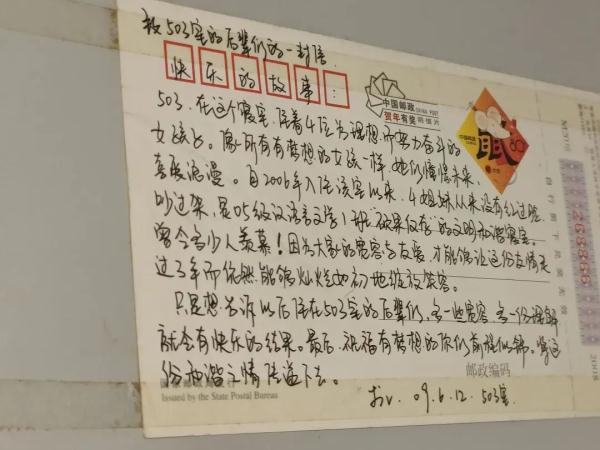 致503室的后辈们的一封信
快乐的故事:
中国邮政
CHINA POST
贺年有奖明信片
中国邮政
80分
503,在这个寝室,住着4位为理想而努力奋斗的
女孩子。像所有有梦想的女孩一样,她们憧憬未来、
喜爱浪漫。自2006年入住该室以来,4姐妹从来没有红过脸,
吵过架,是05级汉语言文学1班“硕果仅存”的文明和谐寝室。
曾令多少人羡慕!因为大家的宽容与友爱,才能够让这份友情走
过3年而依然能够灿烂如初地绽放笑容。
只是想告诉以后住在503室的后辈们,多一些宽容,多一份理解
就会有快乐的结果。最后,祝福有梦想的你们前程似锦。将这
份和谐之情传递下去。
邮政编码
Issued by the State Postal Bureau
于 09.6.12. 503室
2008